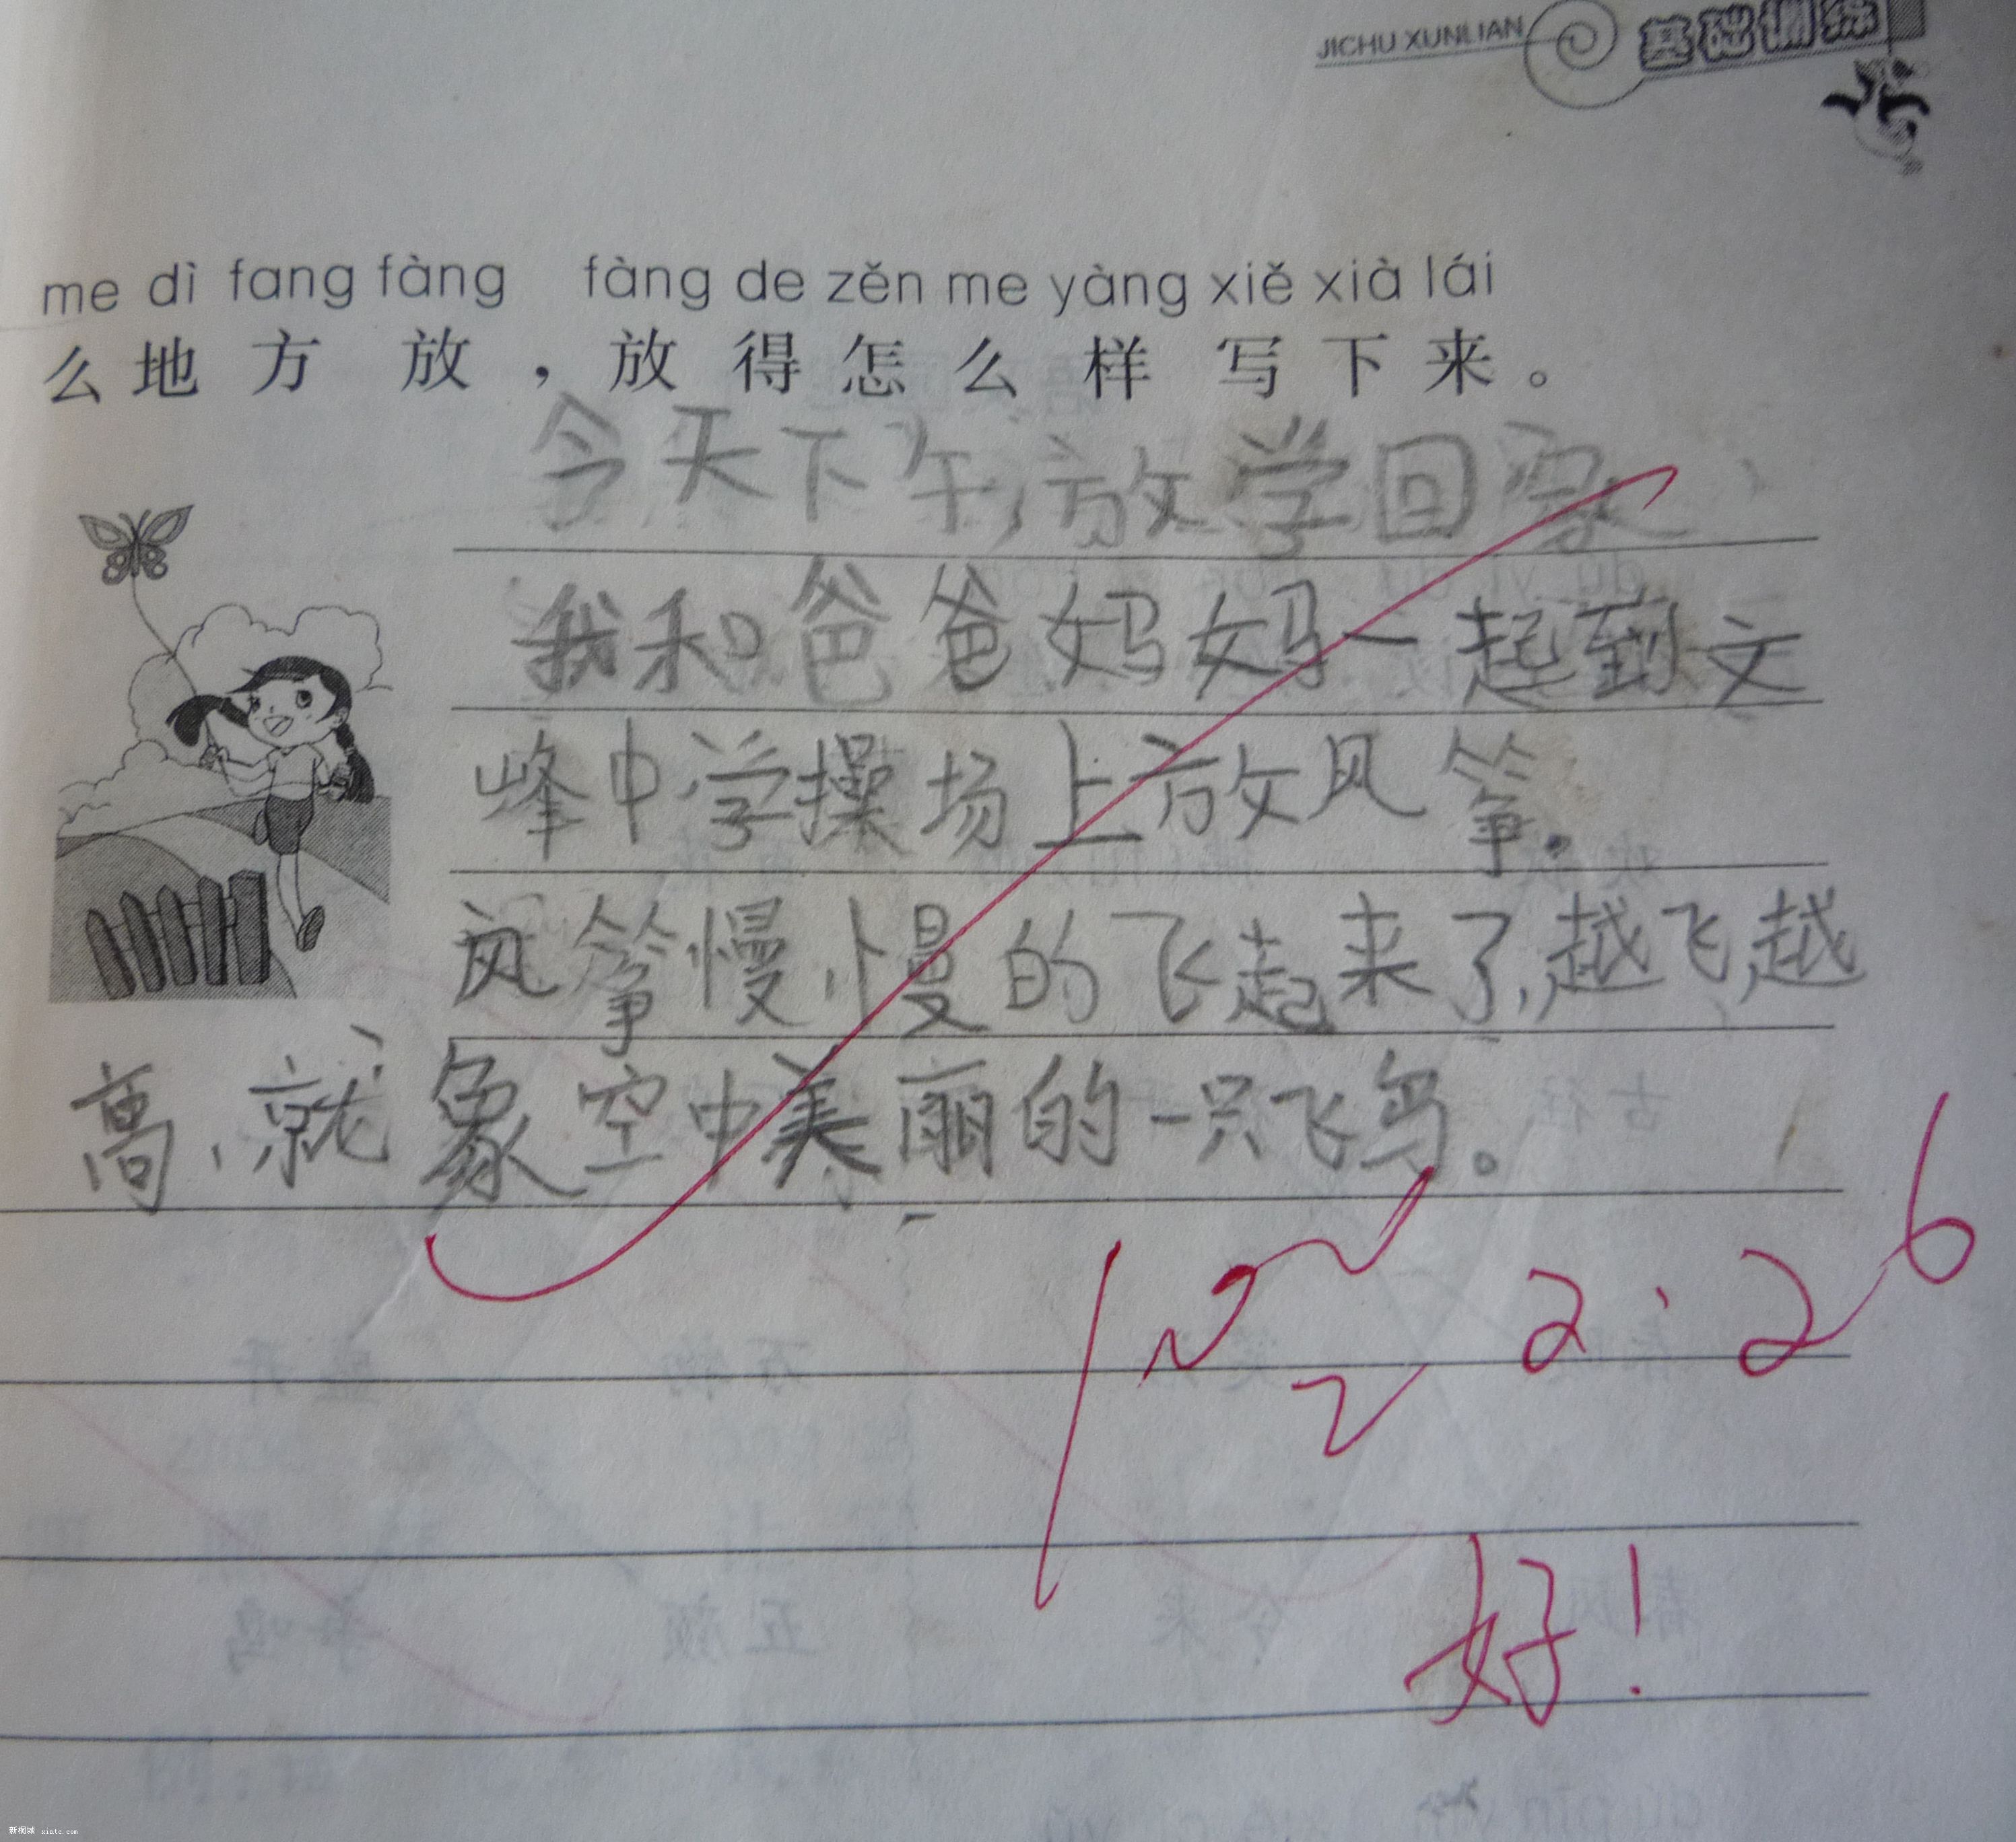 JICHU XUNLIAN 基础训练
me dì fang fàng fàng de zěn me yàng xiě xià lái
么地方放，放得怎么样写下来。
今天下午,放学回家
我和爸爸妈妈一起到文
峰中学操场上放风筝.
风筝慢慢的飞起来了,越飞,越
高,就象空中美丽的一只飞鸟。
2.26
好!
新桐城 xintc.com